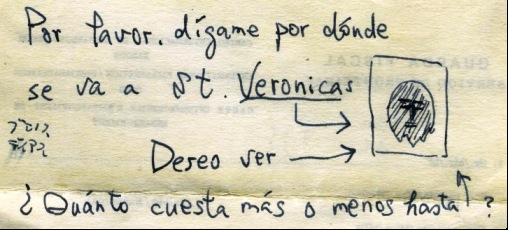 Por favor. dígame por dónde
se va a St. Veronicas
Deseo ver
¿ Quánto cuesta más o menos hasta ?